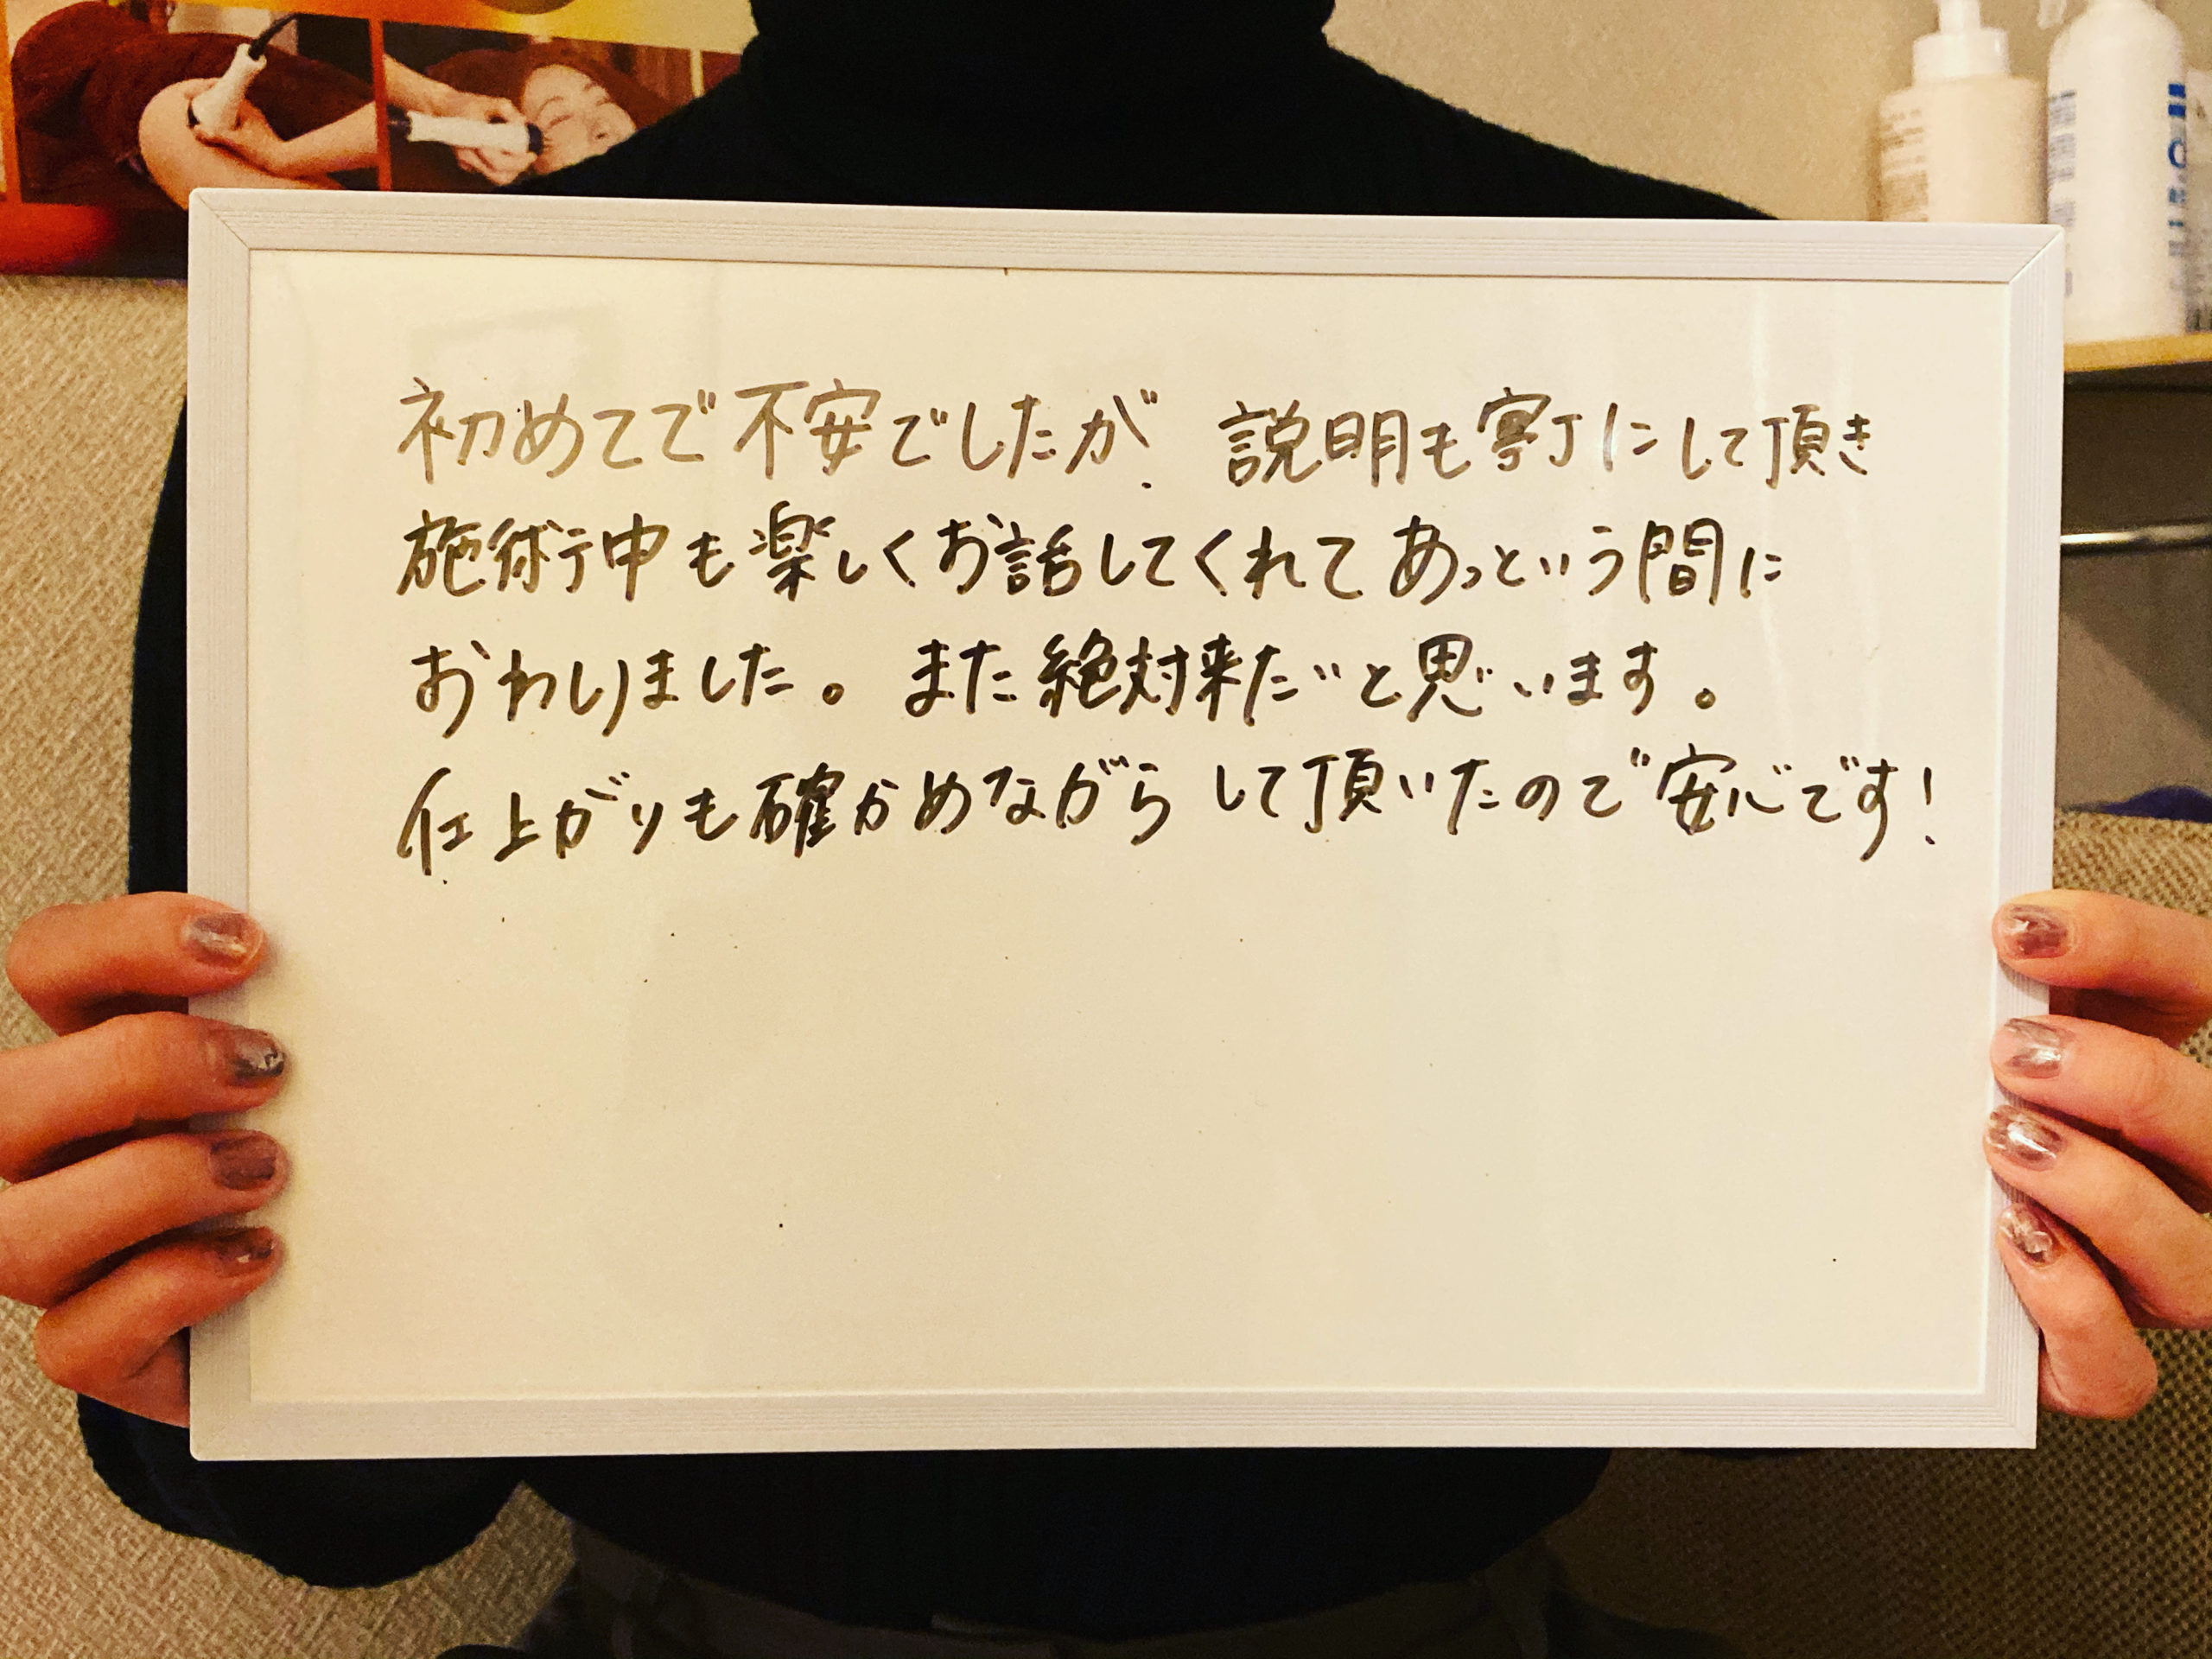 初めてで不安でしたが、説明も寧丁にして頂き
施術中も楽しくお話してくれてあっという間に
おわりました。また絶対来たいと思います。
仕上がりも確かめながらして頂いたので安心です!